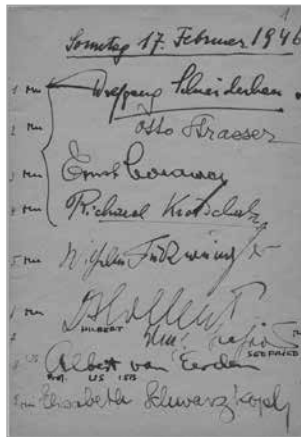 1
Sonntag 17. Februar 1946
1 Mu Wolfgang Schneiderhan
2 Mu Otto Strasser
3 Mu Ernst Morawec
4 Mu Richard Krotschak
5 Mu Wilhelm Furtwängler
HILBERT
SEEFRIED
Albert van Eerden
US ISB
Elisabeth Schwarzkopf